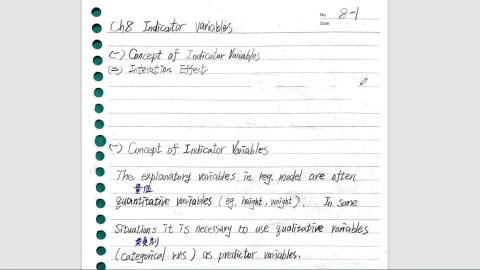 No. 8-1
Date
Ch8 Indicator Variables
(一) Concept of Indicator Variables
(二) Interation Effect
(一) Concept of Indicator Variables
The explanatory variables in reg. model are often
量值
quantitative variables (eg. height, weight). In some
situations it is necessary to use qualitative variables
類別
(categorical) as predictor variables.